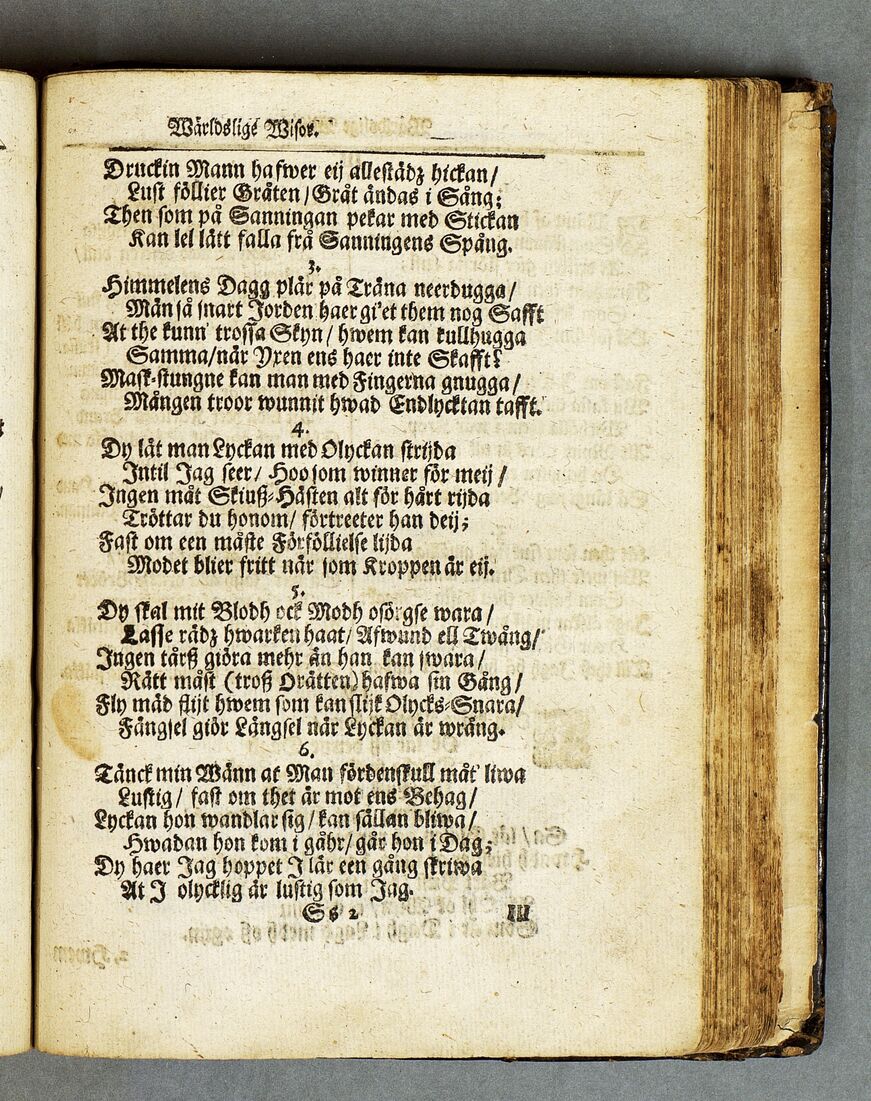 Wärldslige Wisor.
Druckin Mann hafwer eij allestädz hickan/
Lust föllier Gråten/Gråt ändas i Sång;
Then som på Sanningan pekar med Stickan
Kan lel lätt falla frå Sanningens Spång.
3.
Himmelens Dagg plär på Träna neerdugga/
Män så snart Jorden haer gi'et them nog Safft
At the kunn' trossa Skyn/ hwem kan kullhugga
Samma/når Yxen ens haer inte Skafft?
Mask-stungne kan man med Fingerna gnugga/
Mången troor wunnit hwad Endlycktan tafft.
4.
Dy låt man Lyckan med Olyckan strijda
Intil Jag seer/ Hoo som winner för meij/
Ingen måt Skiuß-Hästen alt för hårt rijda
Tröttar du honom/ förtreeter han deij;
Fast om een måste Förföllielse lijda
Modet blier fritt når som Kroppen är eij.
5.
Dy skal mit Blodh ock Modh osörgse wara/
Lasse rädz hwarken haat/ Afwund ell Twång/
Ingen tårß giöra mehr än han kan swara/
Rätt måst (troß Orätten) hafwa sin Gång/
Fly mäd flijt hwem som kan slijk Olycks-Snara/
Fängsel giör Längsel når Lyckan är wrång.
6.
Tänck min Wänn at Man fördenskull måt' liwa
Lustig/ fast om thet är mot ens Behag/
Lyckan hon wandlar sig/ kan sällan bliwa/
Hwadan hon kom i gåhr/ går hon i Dag;
Dy haer Jag hoppet I lär een gång skriwa
At I olycklig är lustig som Jag.
Ss 2
III